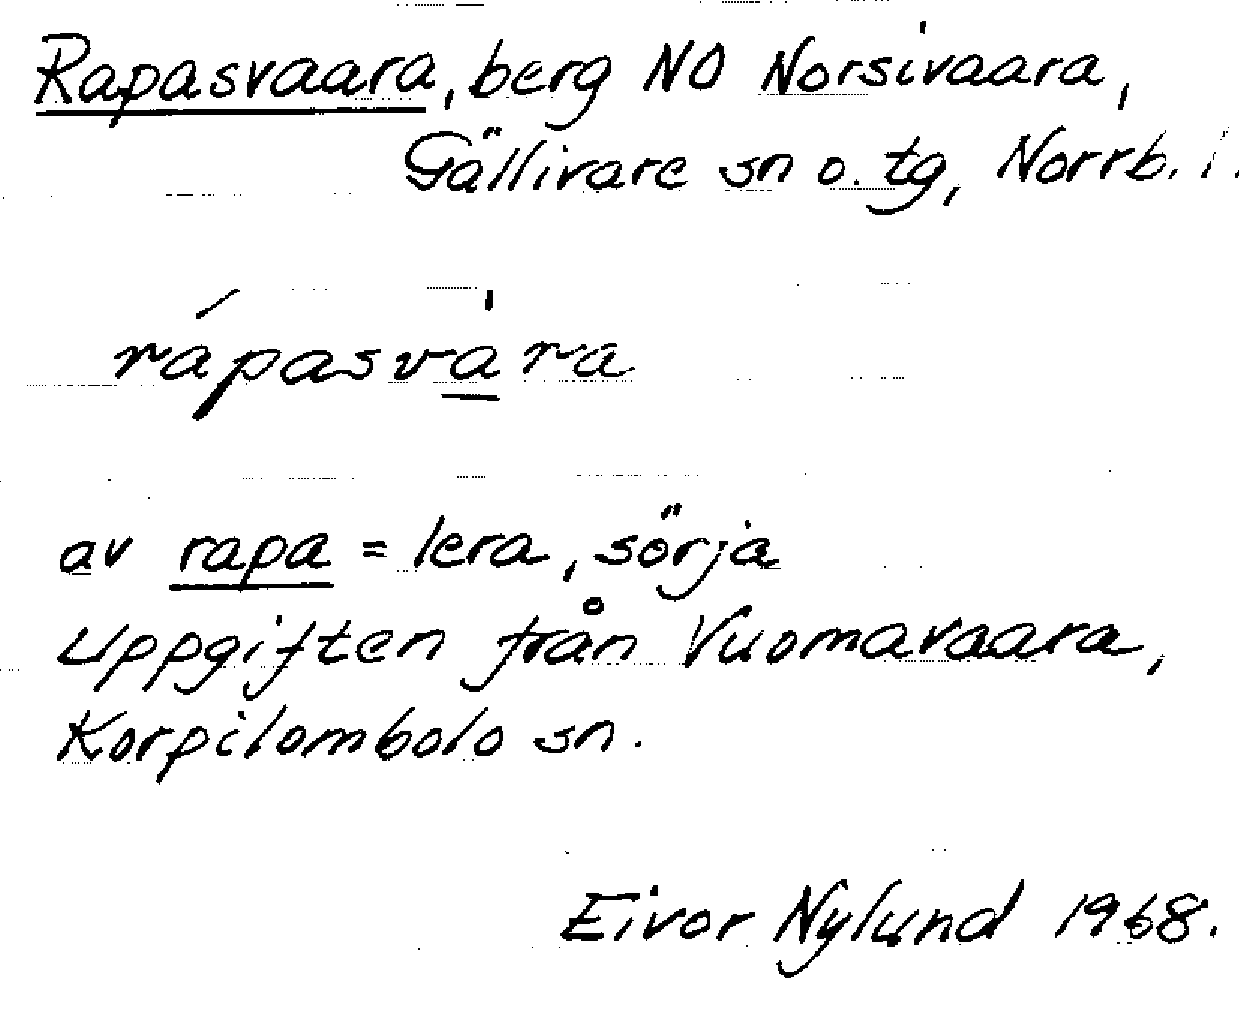 Rapasvaara, berg NO Norsivaara,
Gällivare sn o. tg, Norrb. l.
rápasvàra
av rapa = lera, sörja
Uppgiften från Vuomavaara,
Korpilombolo sn.
Eivor Nylund 1968.